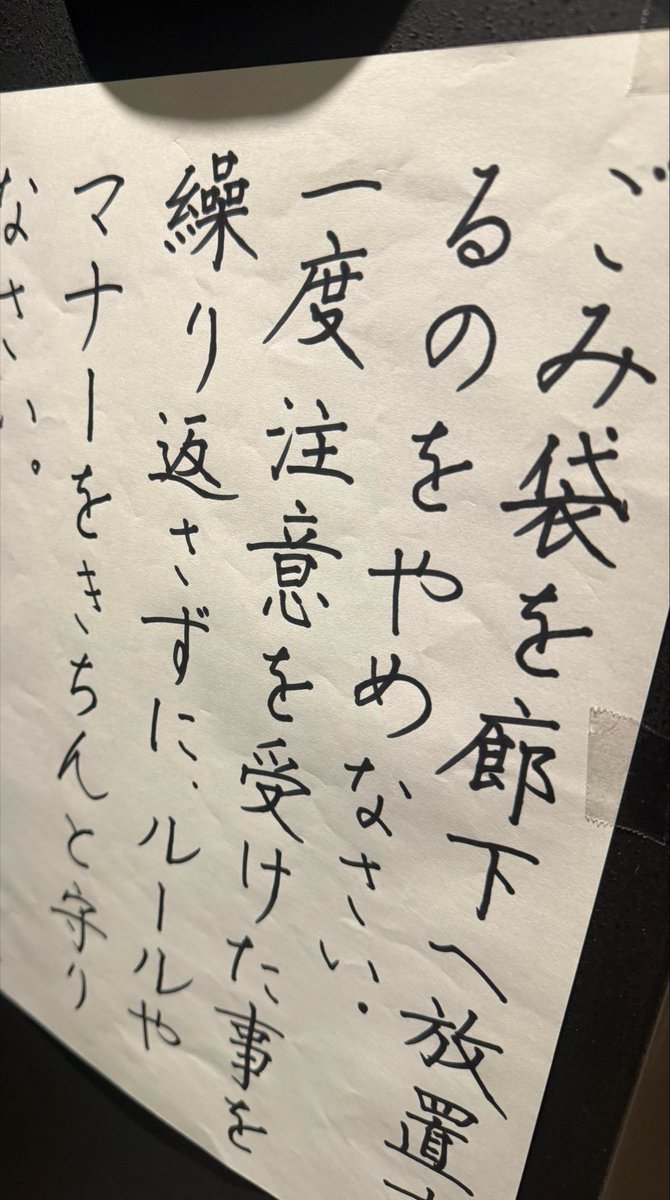 ごみ袋を廊下へ放置
るのをやめなさい。
一度注意を受けた事を
繰り返さずに、ルールや
マナーをきちんと守り
なさい。